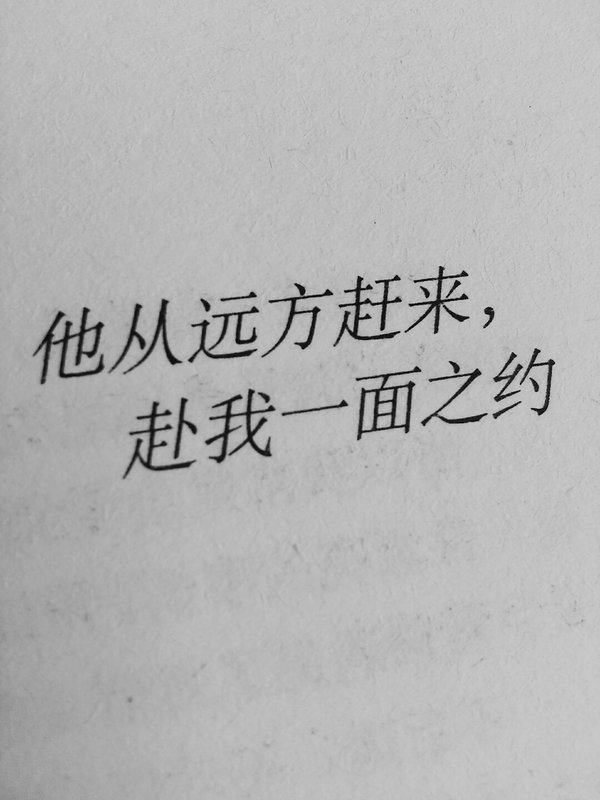 他从远方赶来，
赴我一面之约